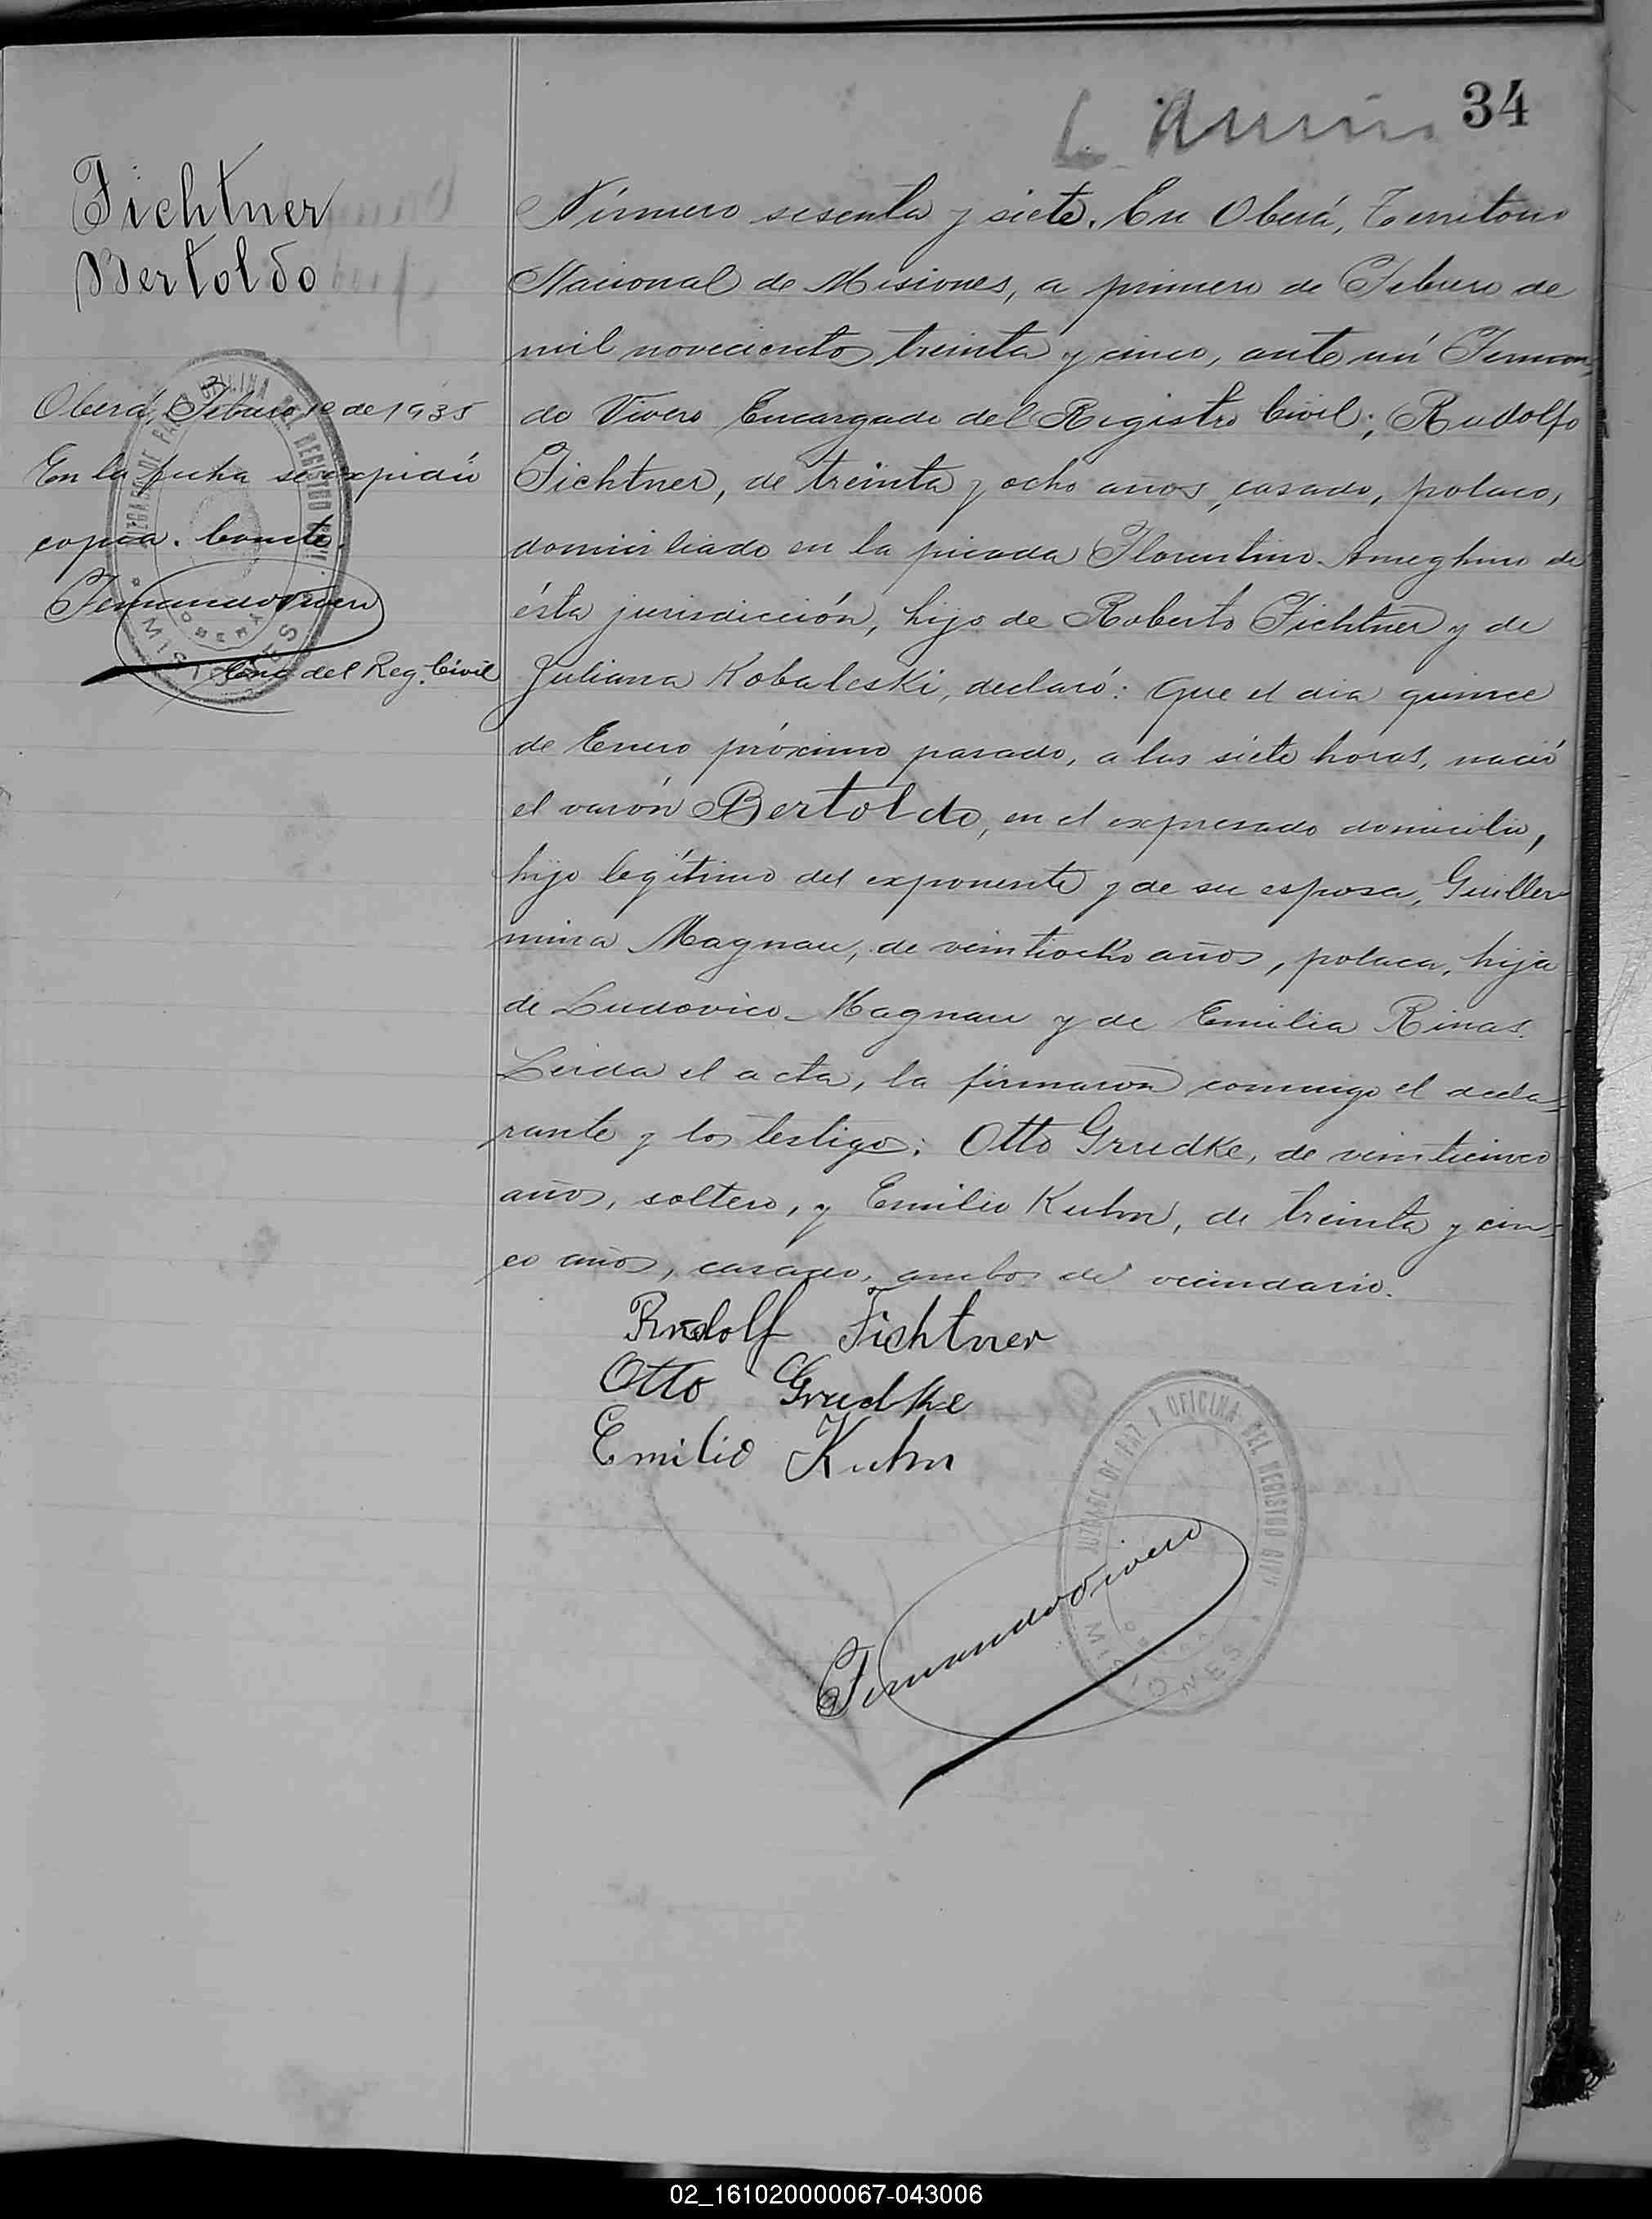 34
Fichtner
Bertoldo
Oberá, Febrero 1º de 1935
En la fecha se expidió
copia. Conste.
Fernando Vivero
Enc. del Reg. Civil
JUZGADO DE PAZ Y OFICINA DEL REGISTRO CIVIL
OBERA
MISIONES
Número sesenta y siete. En Oberá, Territorio
Nacional de Misiones, a primero de Febrero de
mil novecientos treinta y cinco, ante mí Fernan-
do Vivero Encargado del Registro Civil; Rudolfo
Fichtner, de treinta y ocho años, casado, polaco,
domiciliado en la picada Florentino Ameghino de
ésta jurisdicción, hijo de Roberto Fichtner y de
Juliana Kobaleski, declaró: Que el día quince
de Enero próximo pasado, a las siete horas, nació
el varón Bertoldo, en el expresado domicilio,
hijo legítimo del exponente y de su esposa, Guiller-
mina Magnau, de veintiocho años, polaca, hija
de Ludovico Magnau y de Emilia Rinas.
Leida el acta, la firmaron conmigo el decla-
rante y los testigos: Otto Grudke, de veinticinco
años, soltero, y Emilio Kuhn, de treinta y cin-
co años, casado, ambos de vecindario.
Rudolf Fichtner
Otto Grudke
Emilio Kuhn
Fernando Vivero
JUZGADO DE PAZ Y OFICINA DEL REGISTRO CIVIL
OBERA
MISIONES
02_161020000067-043006